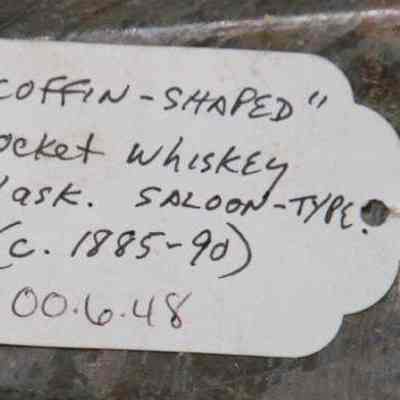 COFFIN-SHAPED"
ocket Whiskey
lask. SALOON-TYPE.
(c. 1885-90)
00.6.48